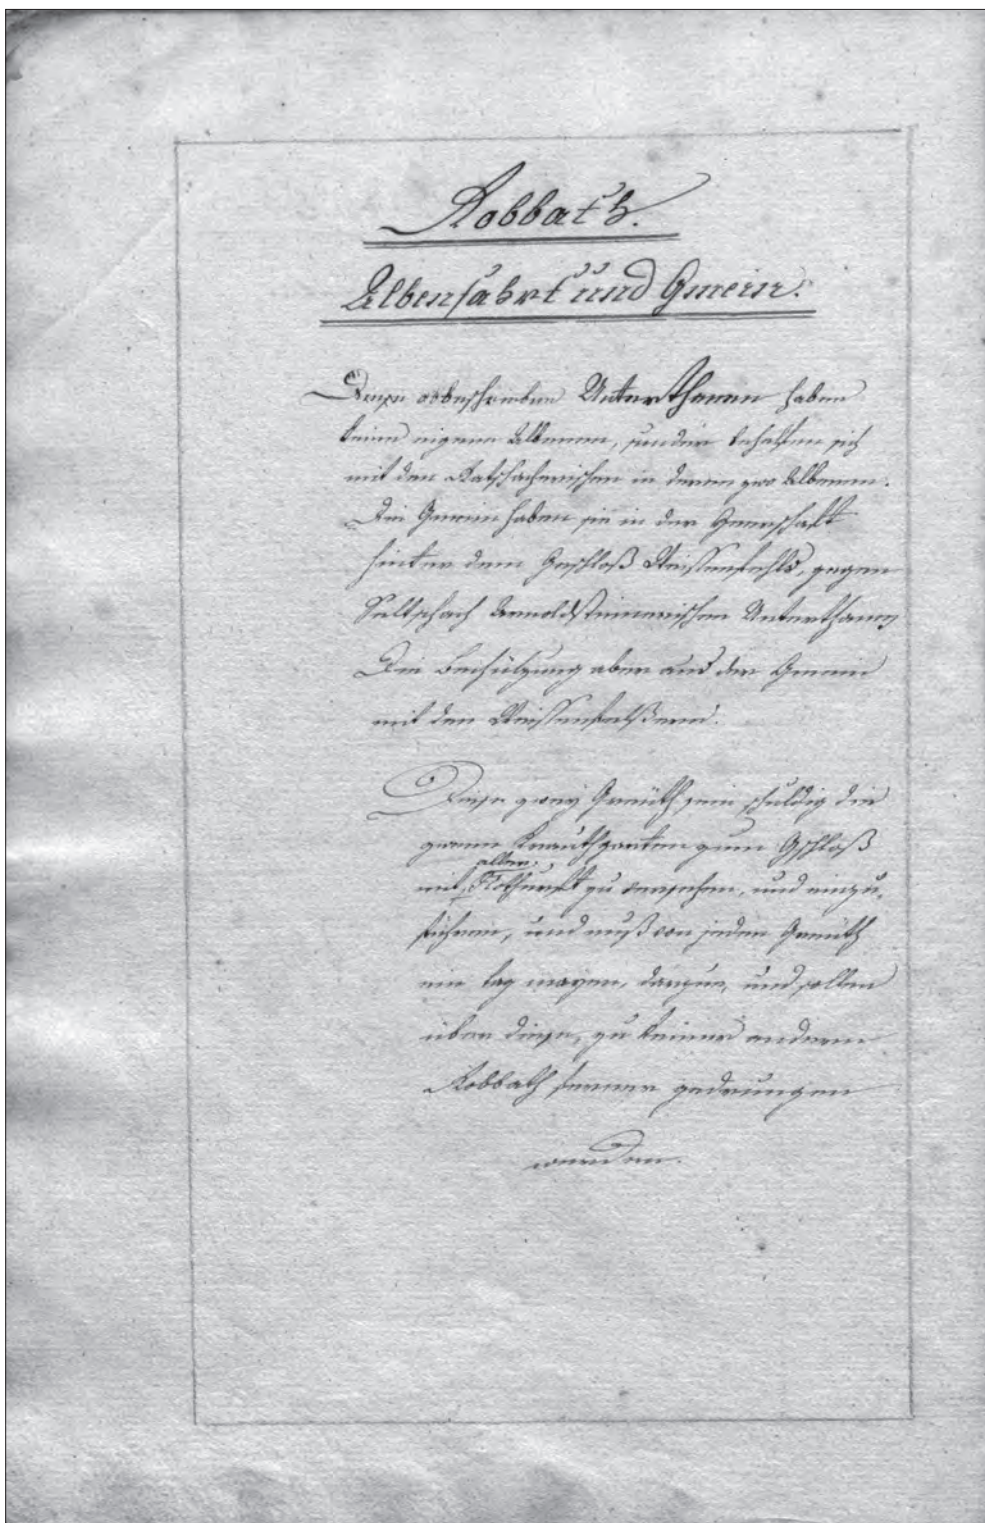 Robbath.
Albenfahrt und Gmein.
Diese obbeschriebene Unterthanen haben
keine eigene Albenen, sonder behelfen sich
mit den Ratschacherischen in deren zwo Albenen.
Die Gemein haben sie in der Herrschaft
hinter dem Geschloß Weissenfehls, gegen
Seltschach Arnoldsteinerischen Unterthanen
Die Behülzung aber aus der Gemein
mit den Weissenfelßern.
Diese zwey Greüth sein schuldig die
Krauthgarten zum Gschloß
mit aller Nothurft zu versehen, und einzu,
führen, und muß von jeden Greüth
ein tag mayen, und sollen
über diese, zu keiner andern
Robbath ferner gedrungen
werden.